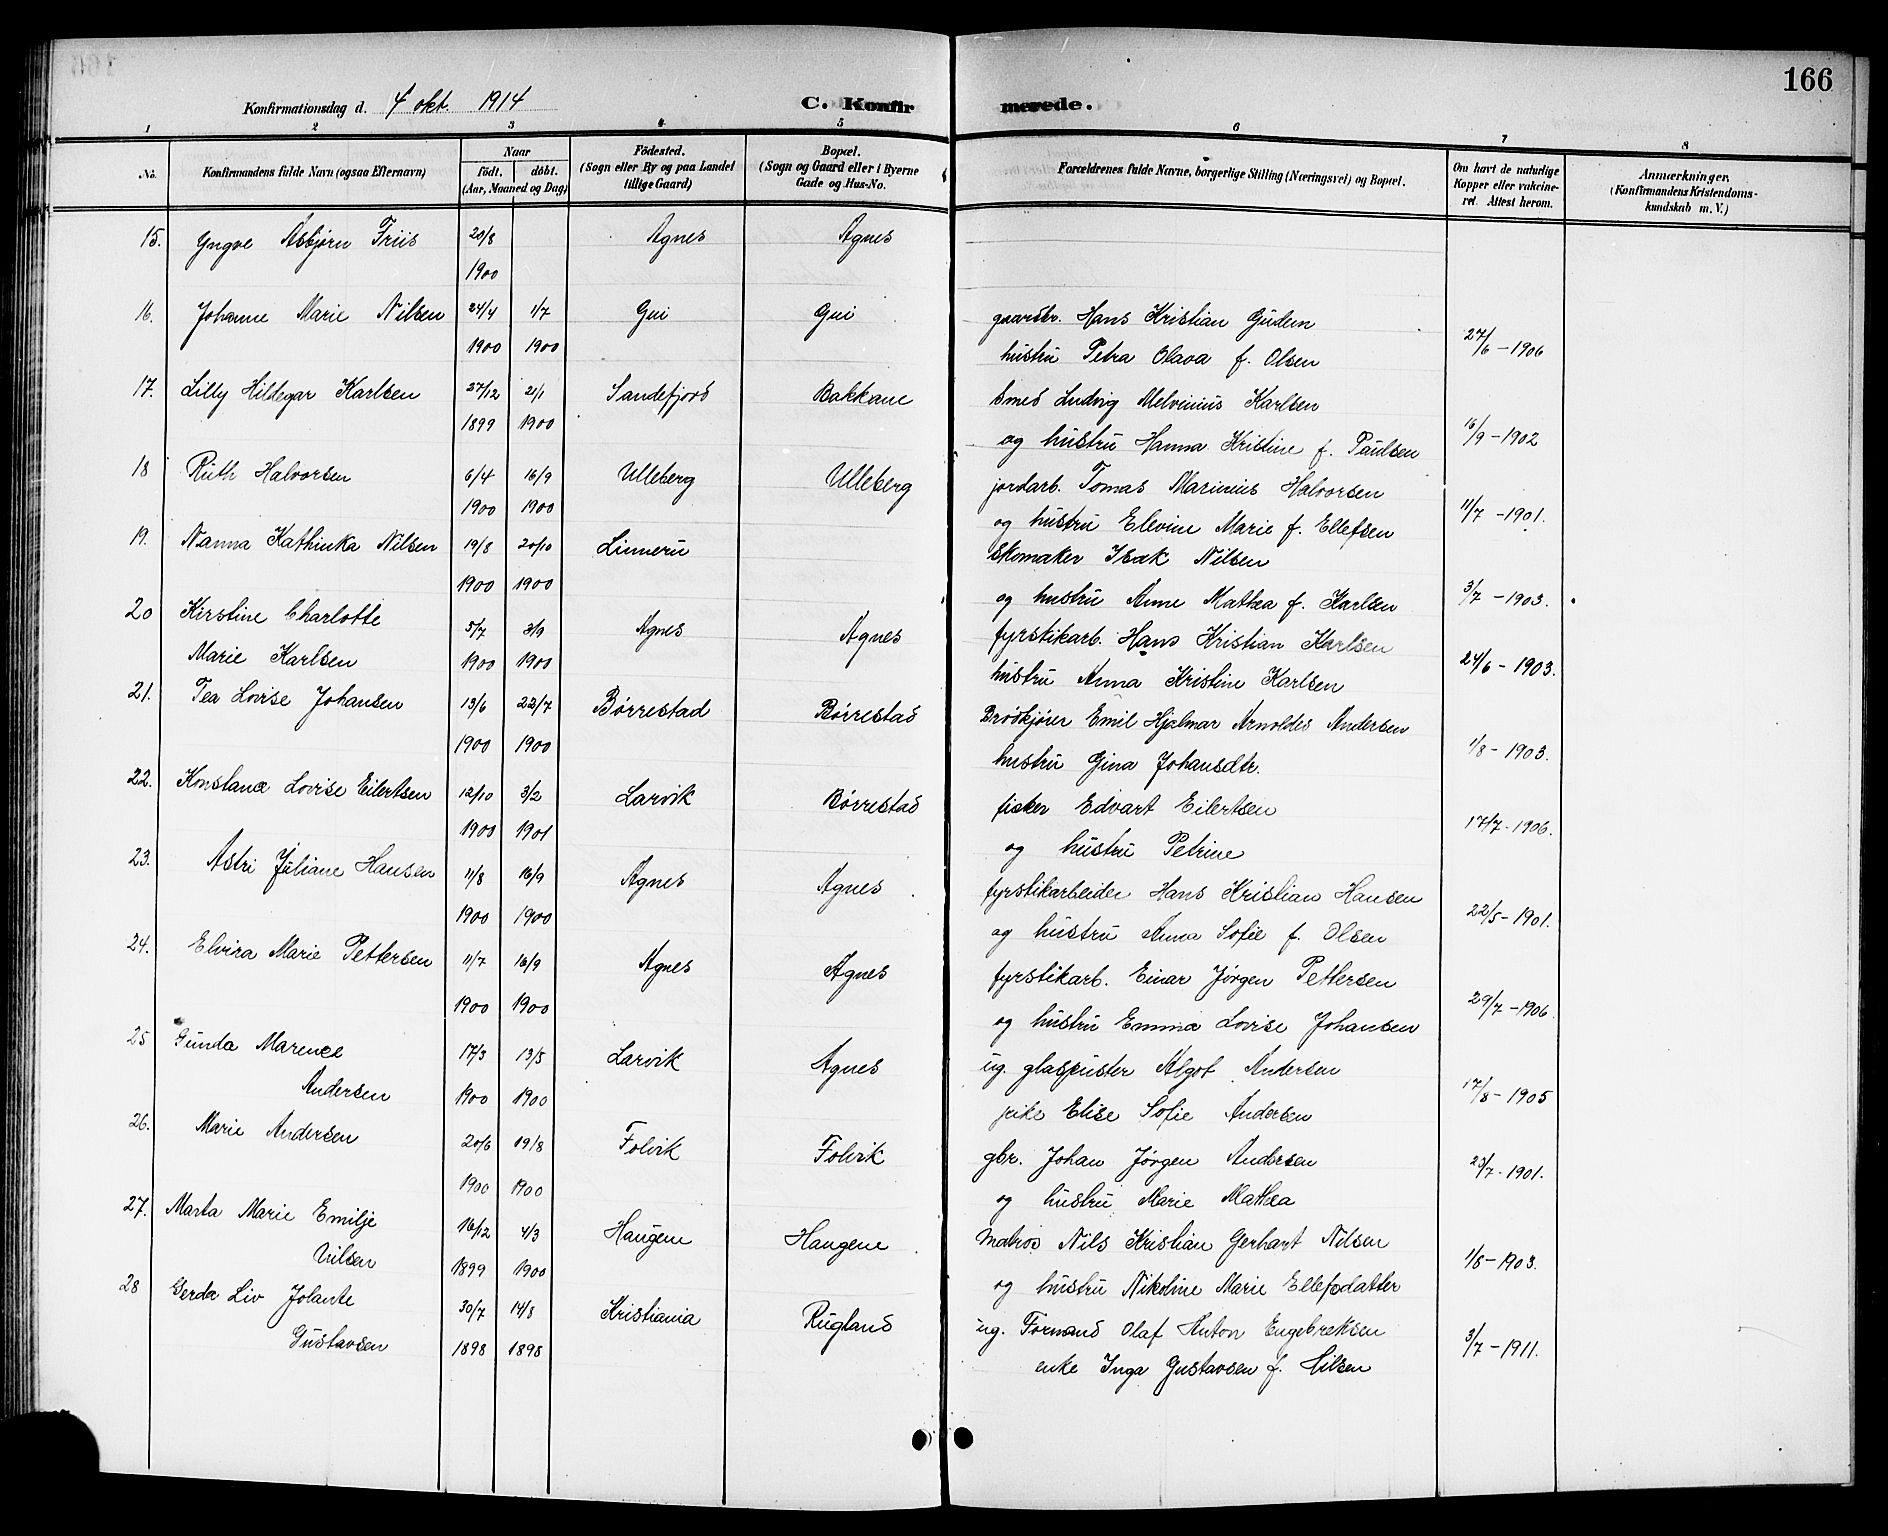 166
Konfirmationsdag d. 4 okt. 1914
C. Konfirmerede.
1 2 3 4 5 6 7 8
No.
Konfirmandens fulde Navn (ogsaa Efternavn)
Naar
födt. döbt.
(Aar, Maaned og Dag)
Födested.
(Sogn eller By og paa Landet
tillige Gaard)
Bopæl.
(Sogn og Gaard eller i Byerne
Gade og Hus-No.
Forældrenes fulde Navne, borgerlige Stilling (Næringsvei) og Bopæl.
Om havt de naturlige
Kopper eller vakcine-
ret. Attest herom.
Anmærkninger.
(Konfirmandens Kristendoms-
kundskab m. V.)
15. Yngve Asbjørn Friis 20/8 Agnes Agnes
1900
16. Johanne Marie Nilsen 24/4 1/7 Gui Gui gaardbr. Hans Kristian Gudem
1900 1900 hustru Petra Olava f. Olsen 27/6 - 1906
17. Lilly Hildegar Karlsen 27/12 21/1 Sandefjord Bakkane Smed Ludvig Melvinius Karlsen
1899 1900 og hustru Hanna Kristine f. Paulsen 16/9 - 1902
18 Ruth Halvorsen 6/4 16/9 Ulleberg Ulleberg jordarb. Tomas Marinius Halvorsen
1900 1900 og hustru Elevine Marie f. Ellefsen 11/7 - 1901.
19. Nanna Kathinka Nilsen 19/8 20/10 Linneru Skomaker Isak Nilsen
1900 1900 og hustru Anne Mathea f. Karlsen 3/7 - 1903.
20 Kirstine Charlotte 5/7 3/9 Agnes Agnes fyrstikarb. Hans Kristian Karlsen
Marie Karlsen 1900 1900 hustru Anna Kristine Karlsen 24/6 - 1903.
21. Tea Lovise Johansen 13/6 22/7 Børrestad Børrestad Brødkjører Emil Hjalmar Arnoldes Andersen
1900 1900 hustru Gina Johansdtr. 1/8 - 1903.
22. Konstanse Lovise Eilertsen 12/10 3/2 Larvik Børrestad fisker Edvart Eilertsen
1900 1901 og hustru Petrine 17/7 - 1906.
23. Astri Juliane Hansen 11/8 16/9 Agnes Agnes fyrstikarbeider Hans Kristian Hansen
1900 1900 og hustru Anna Sofie f. Olsen 22/5 - 1901.
24. Elvira Marie Pettersen 11/7 16/9 Agnes Agnes fyrstikarb. Einar Jørgen Pettersen
1900 1900 og hustru Emma Lovise Johansen 29/7 - 1906.
25 Gunda Marence 17/3 13/5 Larvik Agnes ug. glaspuster Algot Andersen
Andersen 1900 1900 pike Elise Sofie Andersen 17/8 - 1905
26. Marie Andersen 20/6 19/8 Folvik Folvik gbr. Johan Jørgen Andersen
1900 1900 og hustru Marie Mathea 23/7 - 1901.
27. Marta Marie Emilje 16/12 4/3 Haugene Haugene Matros Nils Kristian Gerhart Nilsen
Nilsen 1899 1900 og hustru Nikoline Marie Ellefsdatter 1/8 - 1903.
28 Gerda Liv Jolante 30/7 14/8 Kristiania Rugland ug. Formand Olaf Anton Engebretsen
Gustavsen 1898 1898 enke Inga Gustavsen f. Nilsen 3/7 - 1911.